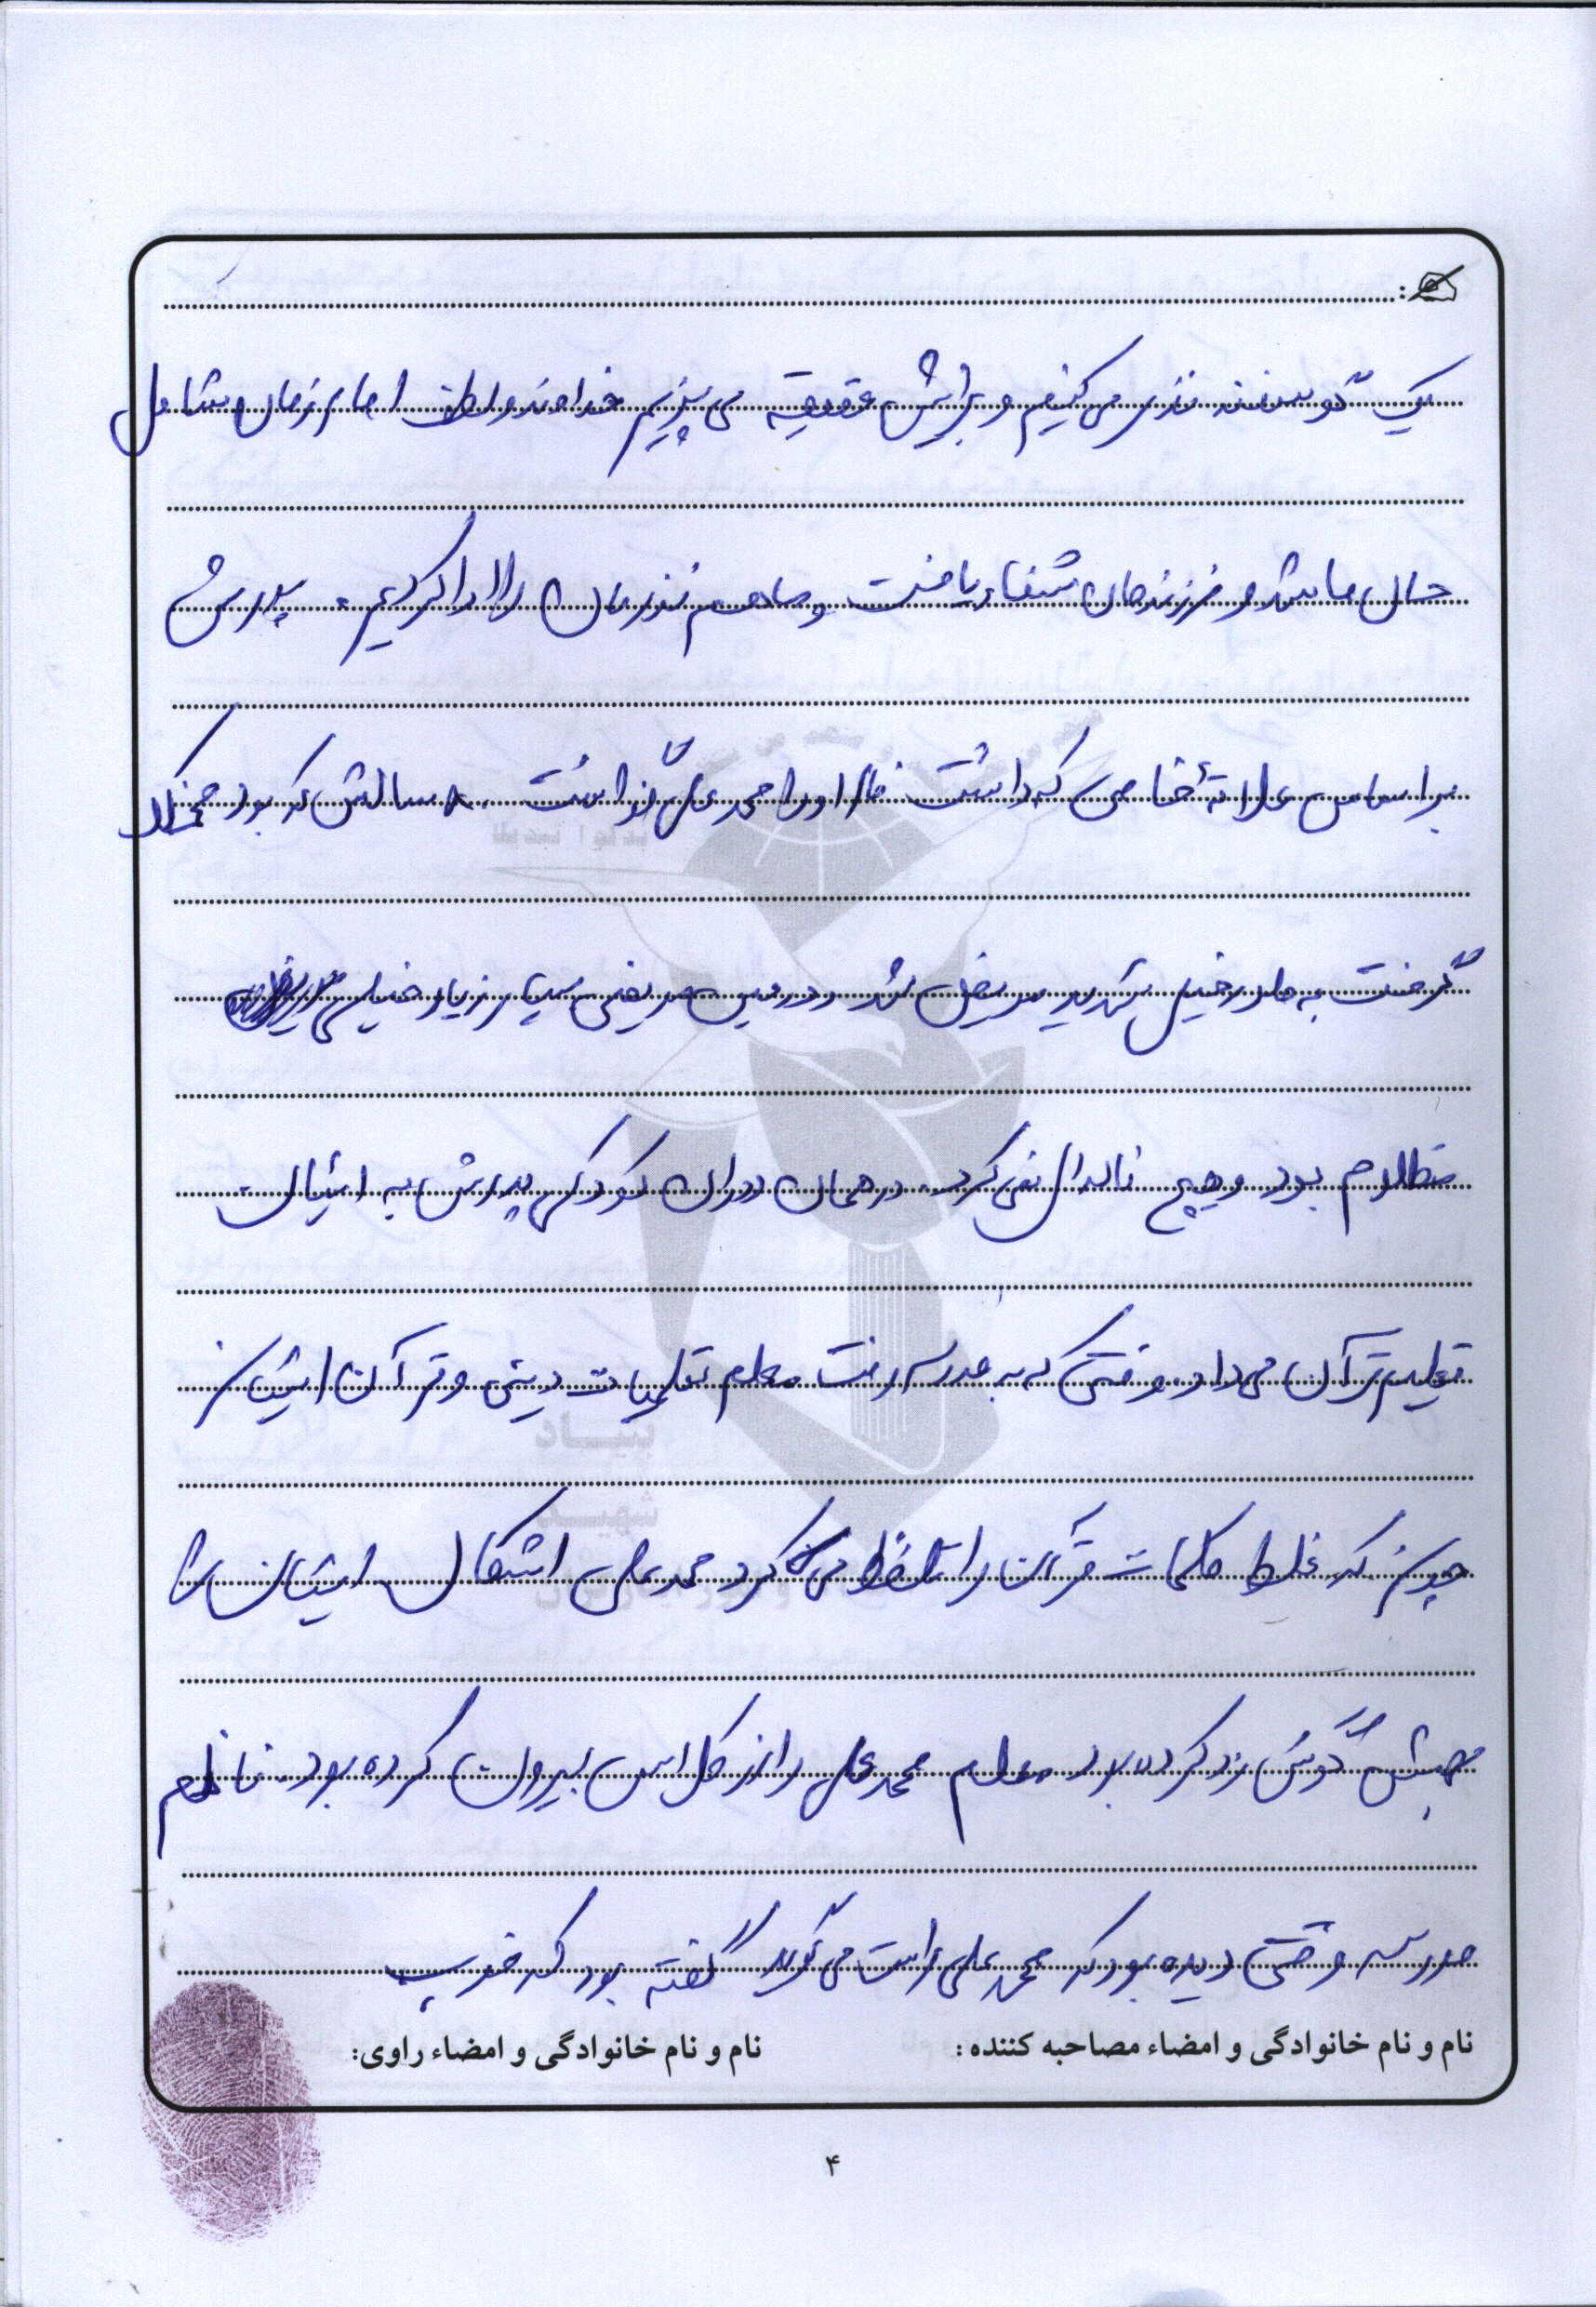 یک گوسفند نذر می کنیم و برایش عقیقه می پزیم خداوند و لطف امام زمان شامل
حال ما شد و فرزندمان شفاء یافت و ما هم نذرمان را ادا کردیم. پدرش
براساس علاقهٔ خاصی که داشت او را محمد علی گذاشت. ۸ سالش که بود مخملک
گرفت به طور خیلی شدید مریض شد و در حین مریضی بسیار زیاد خیلی
مظلوم بود و هیچ ناله ای نمی کرد. در همان دوران کودکی پدرش به ایشان
تعلیم قرآن می داد. وقتی که به مدرسه رفت معلم تعلیمات دینی و قرآن ایشان
چون که غلط کلمات قرآن را تلفظ می کرد محمد علی اشکال ایشان را
بهش گوش زد کرده بود. معلم محمد علی را از کلاس بیرون کرده بود. ناظم
مدرسه وقتی دیده بود که محمد علی راست می گوید گفته بود که خوب
نام و نام خانوادگی و امضاء مصاحبه کننده : نام و نام خانوادگی و امضاء راوی:
۴